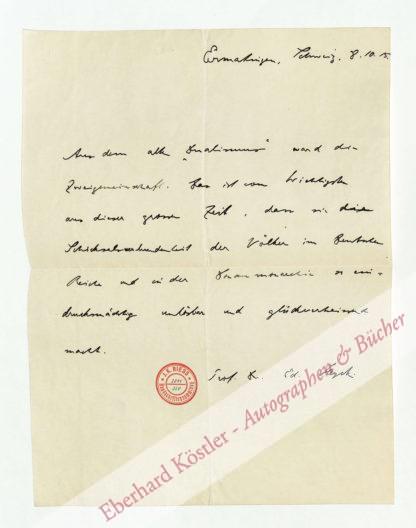 Ermatingen, Schweiz, 8.10.15.
Aus dem alten „Dualismus" ward die
Zweigemeinschaft. Das ist vom Wichtigsten
aus dieser grossen Zeit, dass sie diese
Schicksalsverbundenheit der Völker im Deutschen
Reiche und in der Donaumonarchie so ein-
drucksmächtig unlösbar und glückverheissend
macht.
Prof. Dr. Ed.
I. K. RIESS
Eberhard Köstler - Autographen & Bücher